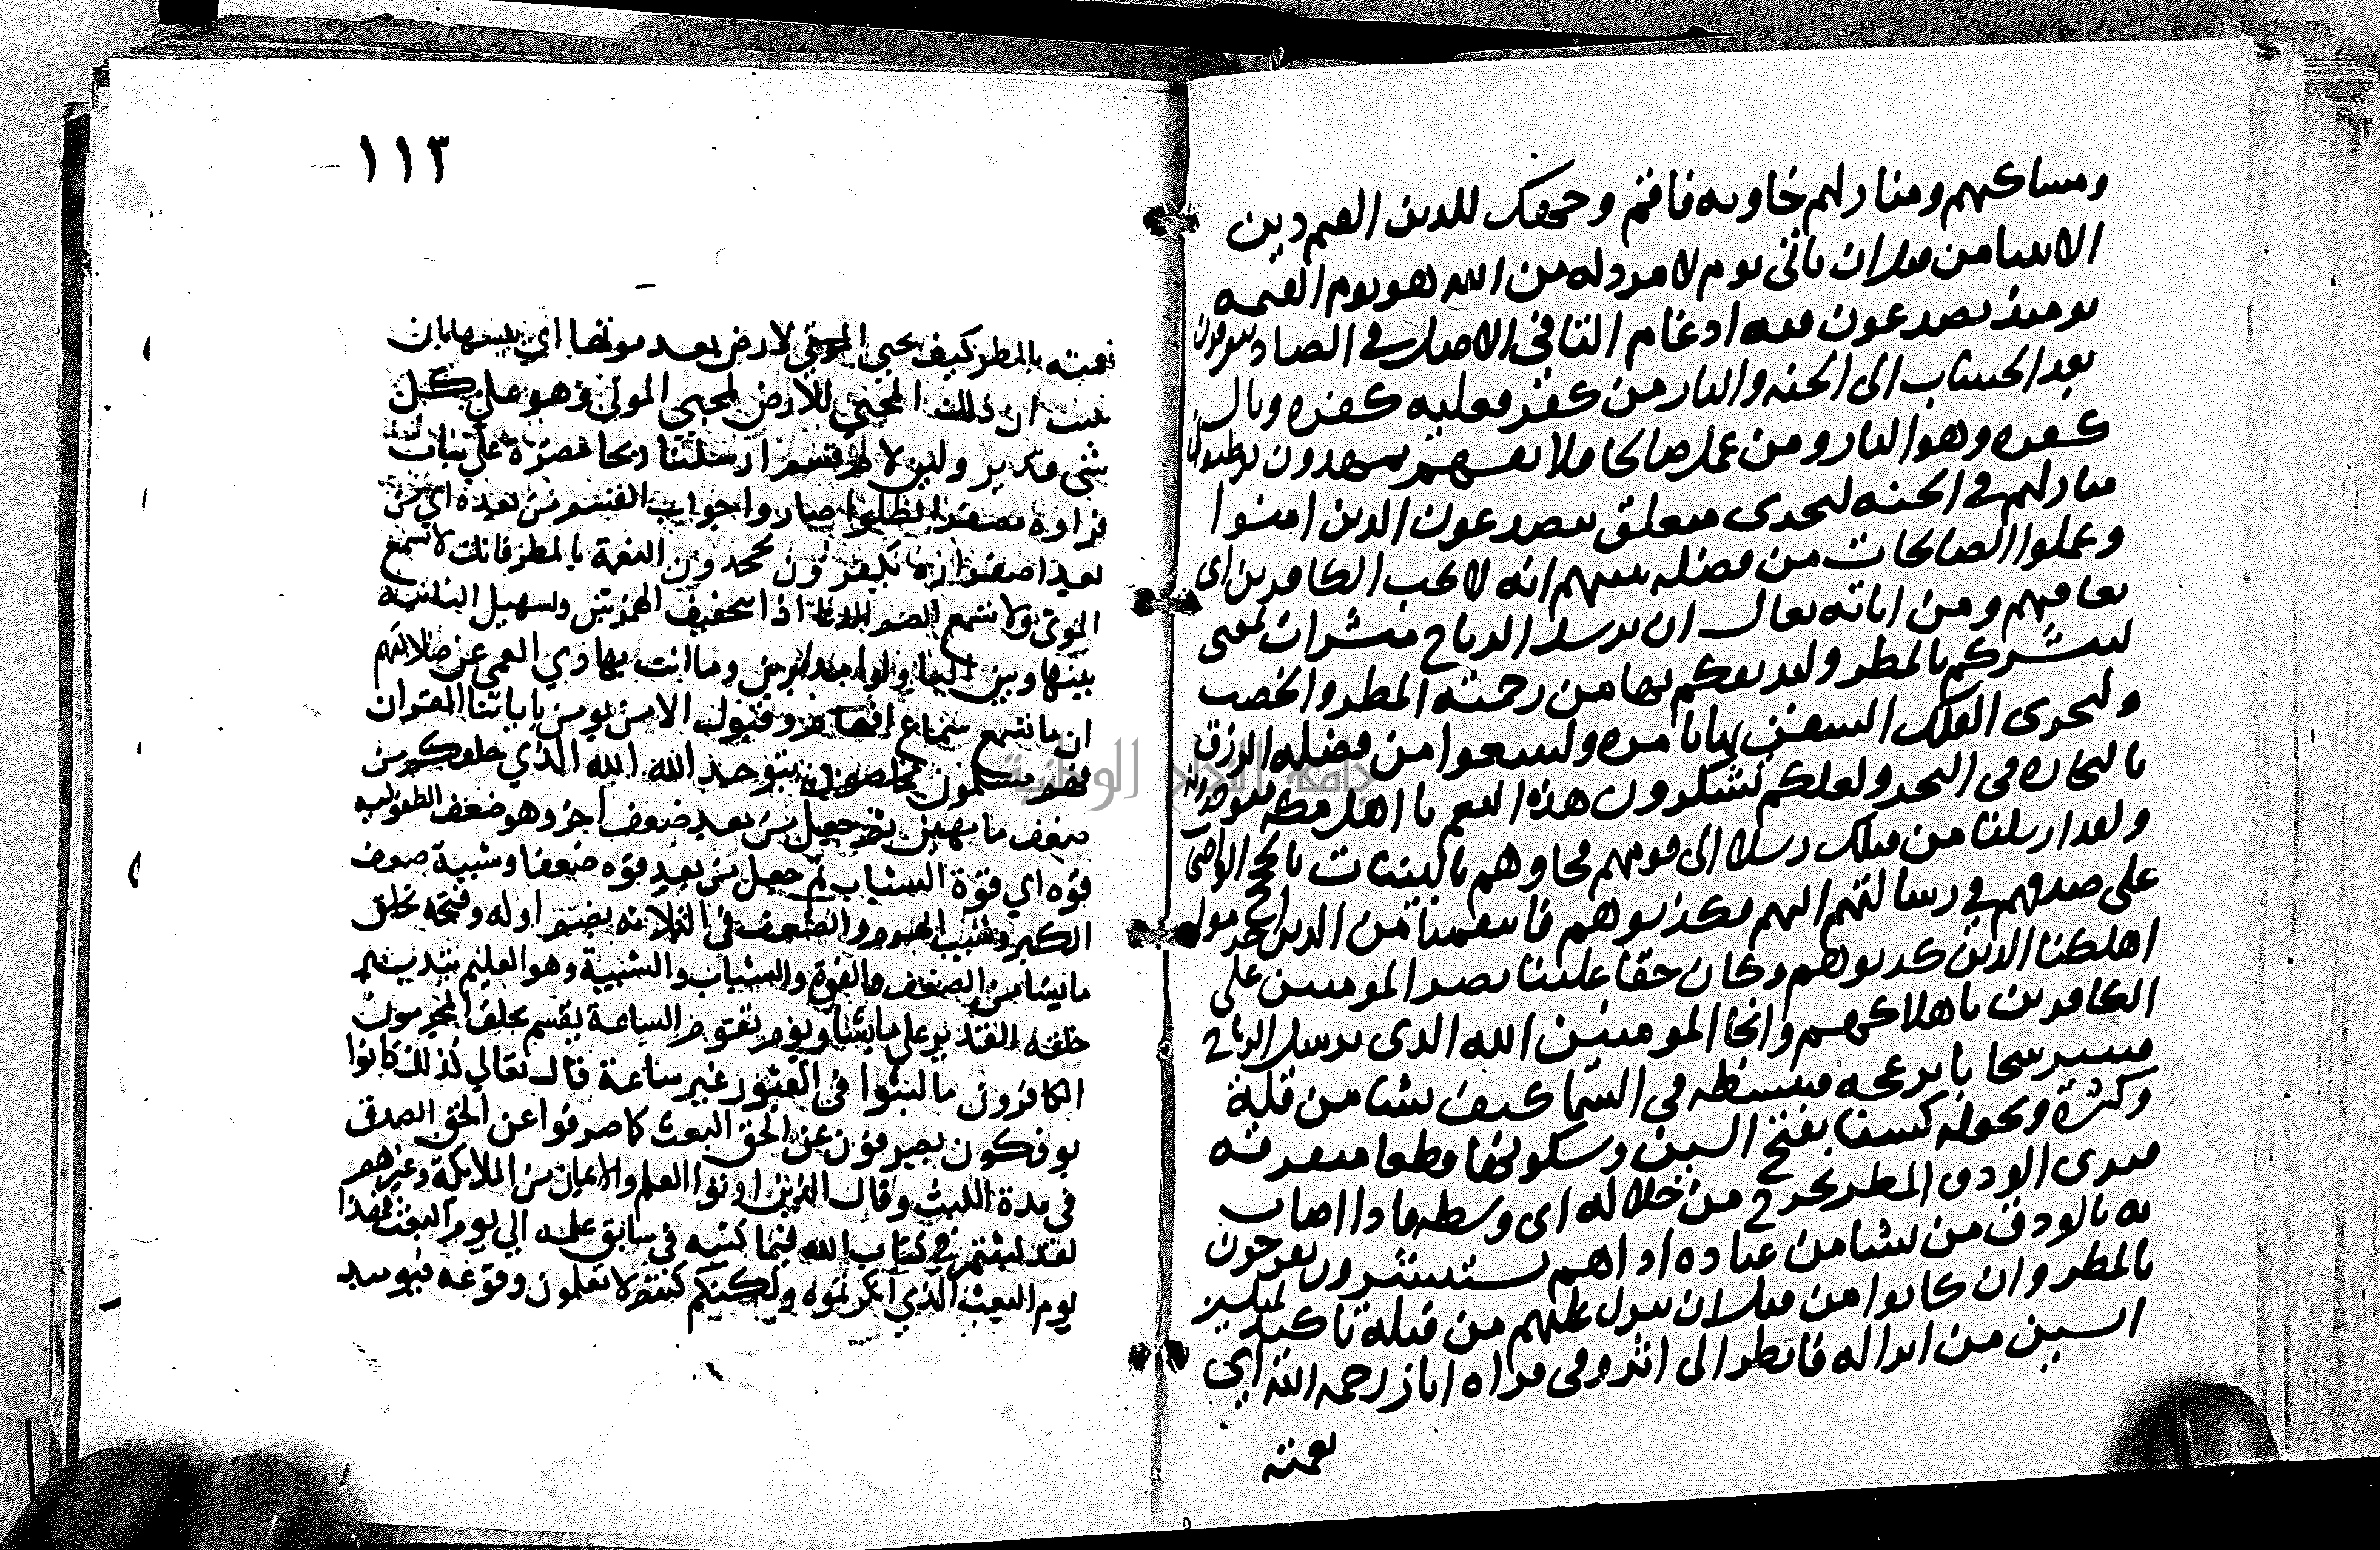 ومساكنهم ومنازلهم خاويه فاقم وجهك للدين القيم دين
الاسلام من قبل ان ياتى يوم لا مرد له من الله هو يوم القيمه
يومئذ يصدعون فيه ادغام التا في الاصل في الصاد يتفرقون
بعد الحساب الى الجنه والنار من كفر فعليه كفره وبال
كفره وهو النار ومن عمل صالحا فلانفسهم يمهدون يوطئون
منازلهم في الجنه ليجزى متعلق بيصدعون الذين امنوا
وعملوا الصالحات من فضله يثيبهم انه لا يحب الكافرين اى
يعاقبهم ومن اياته تعالى ان يرسل الرياح مبشرات بمعنى
لتبشركم بالمطر وليذيقكم بها من رحمته المطر والخصب
ولتجرى الفلك السفن بها بامره ولتبتغوا من فضله الرزق
بالتجاره في البحر ولعلكم تشكرون هذه النعم يا اهل مكه فتوحدونه
ولقد ارسلنا من قبلك رسلا الى قومهم فجاوهم بالبينات بالحجج الواضحات
على صدقهم في رسالتهم اليهم فكذبوهم فانتقمنا من الذين اجرموا
اهلكنا الذين كذبوهم وكان حقا علينا نصر المومنين على
الكافرين باهلاكهم وانجا المومنين الله الذى يرسل الرياح
فتثير سحابا تزعجه فيبسطه في السما كيف يشا من قلة
وكثرة ويجعله كسفا بفتح السين وسكونها قطعا متفرقه
فترى الودق المطر يخرج من خلاله اى وسطه فاذا اصاب
به بالودق من يشا من عباده اذا هم يستبشرون يفرحون
بالمطر وان كانوا من قبل ان ينزل عليهم من قبله تاكيد لمبلسين
ايسين من انزاله فانظر الى اثر وفى قراه اثار رحمه الله اي
نعمته
١١٣
نعمته بالمطر كيف يحيي الارض بعد موتها اي يبسها بان
تنبت ان ذلك المحيي للارض لمحيي الموتى وهو على كل
شي قدير ولين لام قسم ارسلنا ريحا مضرة على نبات
فراوه مصفرا لظلوا صاروا جواب القسم من بعده اي من
بعد اصفراره يكفرون يجحدون النعمة بالمطر فانك لا تسمع
الموتى ولا تسمع الصم الدعا اذا بتحقيق الهمزتين وتسهيل الثانية
بينها وبين اليا ولوا مدبرين وما انت بهادي العمي عن ضلالتهم
ان ما تسمع سماع افهام وقبول الا من يومن باياتنا القران
فهم مسلمون مخلصون بتوحيد الله الله الذي خلقكم من
ضعف ما مهين ثم جعل من بعد ضعف اخر وهو ضعف الطفولية
قوه اي قوة الشباب ثم جعل من بعد قوه ضعفا وشيبة ضعف
الكبر وشيب الهرم والضعف في الثلاثه بضم اوله وفتحه يخلق
ما يشا من الضعف والقوة والشباب والشيبة وهو العليم بتدبير
خلقه القدير على ما يشا ويوم تقوم الساعة يقسم يحلف المجرمون
الكافرون ما لبثوا في القبور غير ساعة قال تعالي كذلك كانوا
يوفكون يصرفون عن الحق البعث كما صرفوا عن الحق الصدق
في مدة اللبث وقال الذين اوتوا العلم والايمان من الملايكة وغيرهم
لقد لبثتم في كتاب الله فيما كتبه في سابق علمه الي يوم البعث فهذا
يوم البعث الذي انكرتموه ولكنكم كنتم لا تعلمون وقوعه فيوميذ
جامعة النجاح الوطنية